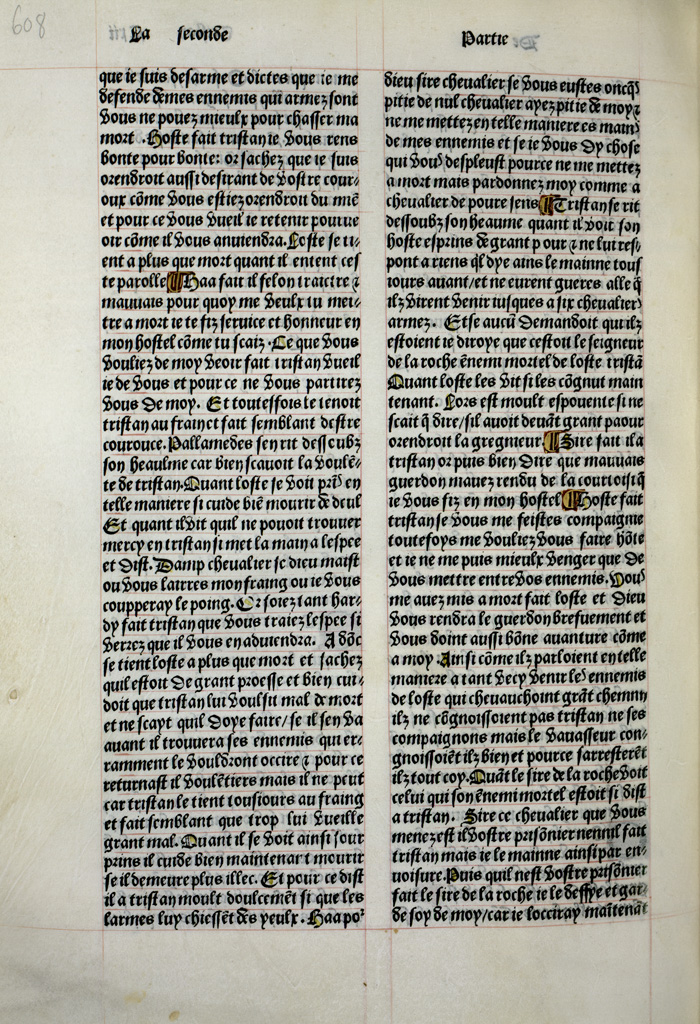 608
La seconde
Partie
que ie suis desarme et dictes que ie me
defende de mes ennemis qui armez sont
Vous ne pouez mieulx pour chasser ma
mort. Hoste fait tristan ie vous rens
bonte pour bonte: or sachez que ie suis
orendroit aussi desirant de vostre cour-
oux cõme vous estiez orendroit du miẽ
et pour ce vous vueil ie retenir pourue
oir cõme il vous auiendra. Loste se ti-
ent a plus que mort quant il entent ces
te parolle Haa fait il felon traictre ⁊
mauuais pour quoy me veulx tu met-
tre a mort ie te fiz seruice et honneur en
mon hostel cõme tu scaiz. Ce que vous
vouliez de moy veoir fait tristan vueil
ie de vous et pour ce ne vous partirez
vous de moy. Et touteffois le tenoit
tristan au frain et fait semblant destre
courouce. Pallamedes sen rit dessoubz
son heaulme car bien scauoit la voulẽ-
te de tristan. Quant loste se voit pris en
telle maniere si cuide biẽ mourir de deul
Et quant il vit quil ne pouoit trouuer
mercy en tristan si met la main a lespee
et dist. Damp cheualier se dieu maist
ou vous lairres mon fraing ou ie vous
coupperay le poing. Or soiez tant har-
dy fait tristan que vous traiez lespee si
verrez que il vous en aduiendra. Adõc
se tient loste a plus que mort et sachez
quil estoit de grant proesse et bien cui-
doit que tristan lui voulsit mal de mort
et ne scayt quil doye faire/se il sen va
auant il trouuera ses ennemis qui er-
ramment le vouldront occire ⁊ pour ce
returnast il voulẽtiers mais il ne peut
car tristan le tient tousiours au fraing
et fait semblant que trop lui vueille
grant mal. Quant il se voit ainsi sour
prins il cuide bien maintenant mourir
se il demeure plus illec. Et pour ce dist
il a tristan moult doulcemẽt si que les
larmes luy chiessẽt des yeulx. Haa por
dieu sire cheualier se vous eustes oncq̃s
pitie de nul cheualier ayez pitie de moy ⁊
ne me mettez en telle maniere es mains
de mes ennemis et se ie vous dy chose
qui vous despleust pource ne me mettez
a mort mais pardonnez moy comme a
cheualier de poure sens Tristan se rit
dessoubz son heaume quant il voit son
hoste esprins de grant pour ⁊ ne lui res-
pont a riens q̃l dye ains le mainne tous
iours auant/et ne eurent gueres alle q̃
ilz virent venir iusques a six cheualiers
armez. Et se aucũ demandoit qui ilz
estoient ie diroye que cestoit le seigneur
de la roche ẽnemi mortel de loste tristã
Quant loste les vit si les cõgnut main
tenant. Lors est moult espouente si ne
scait q̃ dire/sil auoit deuãt grant paour
orendroit la gregneur. Sire fait il a
tristan or puis bien dire que mauuais
guerdon mauez rendu de la courtoisi q̃
ie vous fiz en mon hostel Hoste fait
tristan se vous me feistes compaignie
toutefoys me vouliez vous faire hõte
et ie ne me puis mieulx venger que de
vous mettre entre vos ennemis. Vous
me auez mis a mort fait loste et Dieu
vous rendra le guerdon brefuement et
vous doint aussi bõne auanture cõme
a moy. Ainsi cõme ilz parloient en telle
maniere a tant vecy venir les ennemis
de loste qui cheuauchoint grãt chemin
ilz ne cõgnoissoient pas tristan ne ses
compaignons mais le vauasseur con-
gnoissoiẽt ilz bien et pource sarresterẽt
ilz tout coy. Quãt le sire de la roche voit
celui qui son ẽnemi mortel estoit si dist
a tristan. Sire ce cheualier que vous
menez est il vostre prisõnier nennil fait
tristan mais ie le mainne ainsi par en-
uoisure. Puis quil nest vostre prisõnier
fait le sire de la roche ie le deffye et gar-
de soy de moy/car ie locciray maĩtenãt